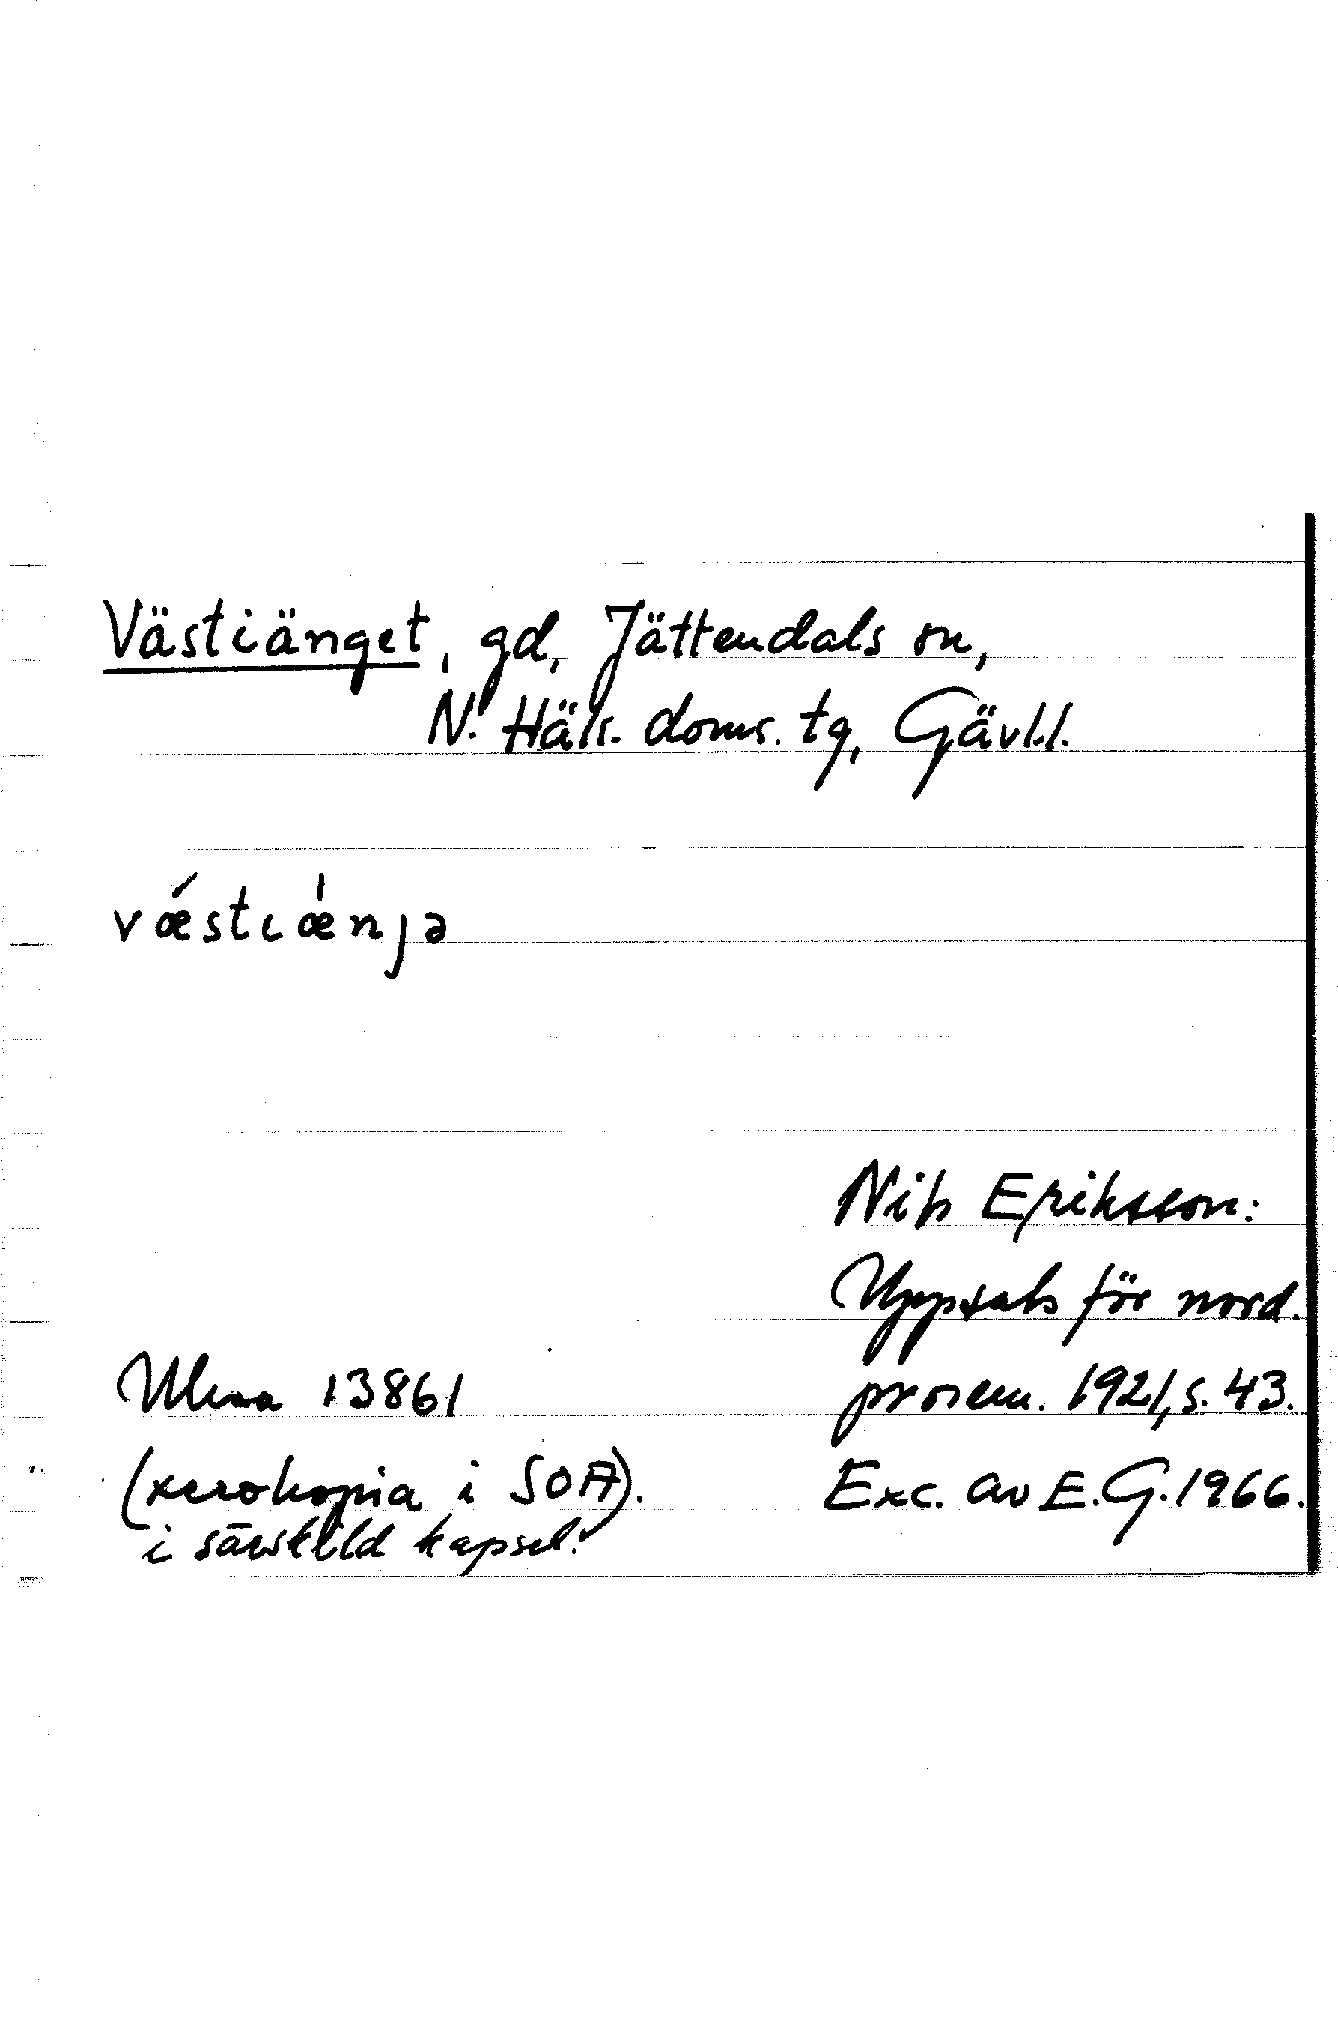 Västiänget, gd, Jättendals sn,
N. Häls. doms. tg, Gävl.l.
vǽstɩǽnȷə
Nils Eriksson:
Uppsats för nord.
prosem. 1921, s. 43.
Exc. av E.G. 1966.
Ulma 13861
(xerokopia i SOA).
i särskild kapsel.